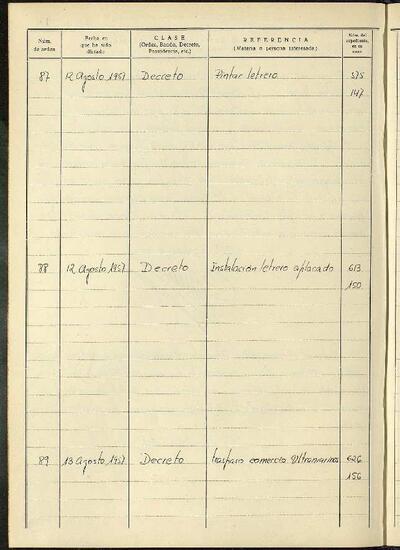 Núm. de orden
Fecha en que ha sido dictado
CLASE (Orden, Bando, Decreto, Providencia, etc.)
REFERENCIA (Materia o persona interesada)
Núm. del expediente, en su caso
87 12 Agosto 1957 Decreto Pintar letrero 575
147
88 12 Agosto 1957 Decreto Instalación letrero aplacado 613
150
89 13 Agosto 1957 Decreto traspaso comercio Ultramarinos 626
156